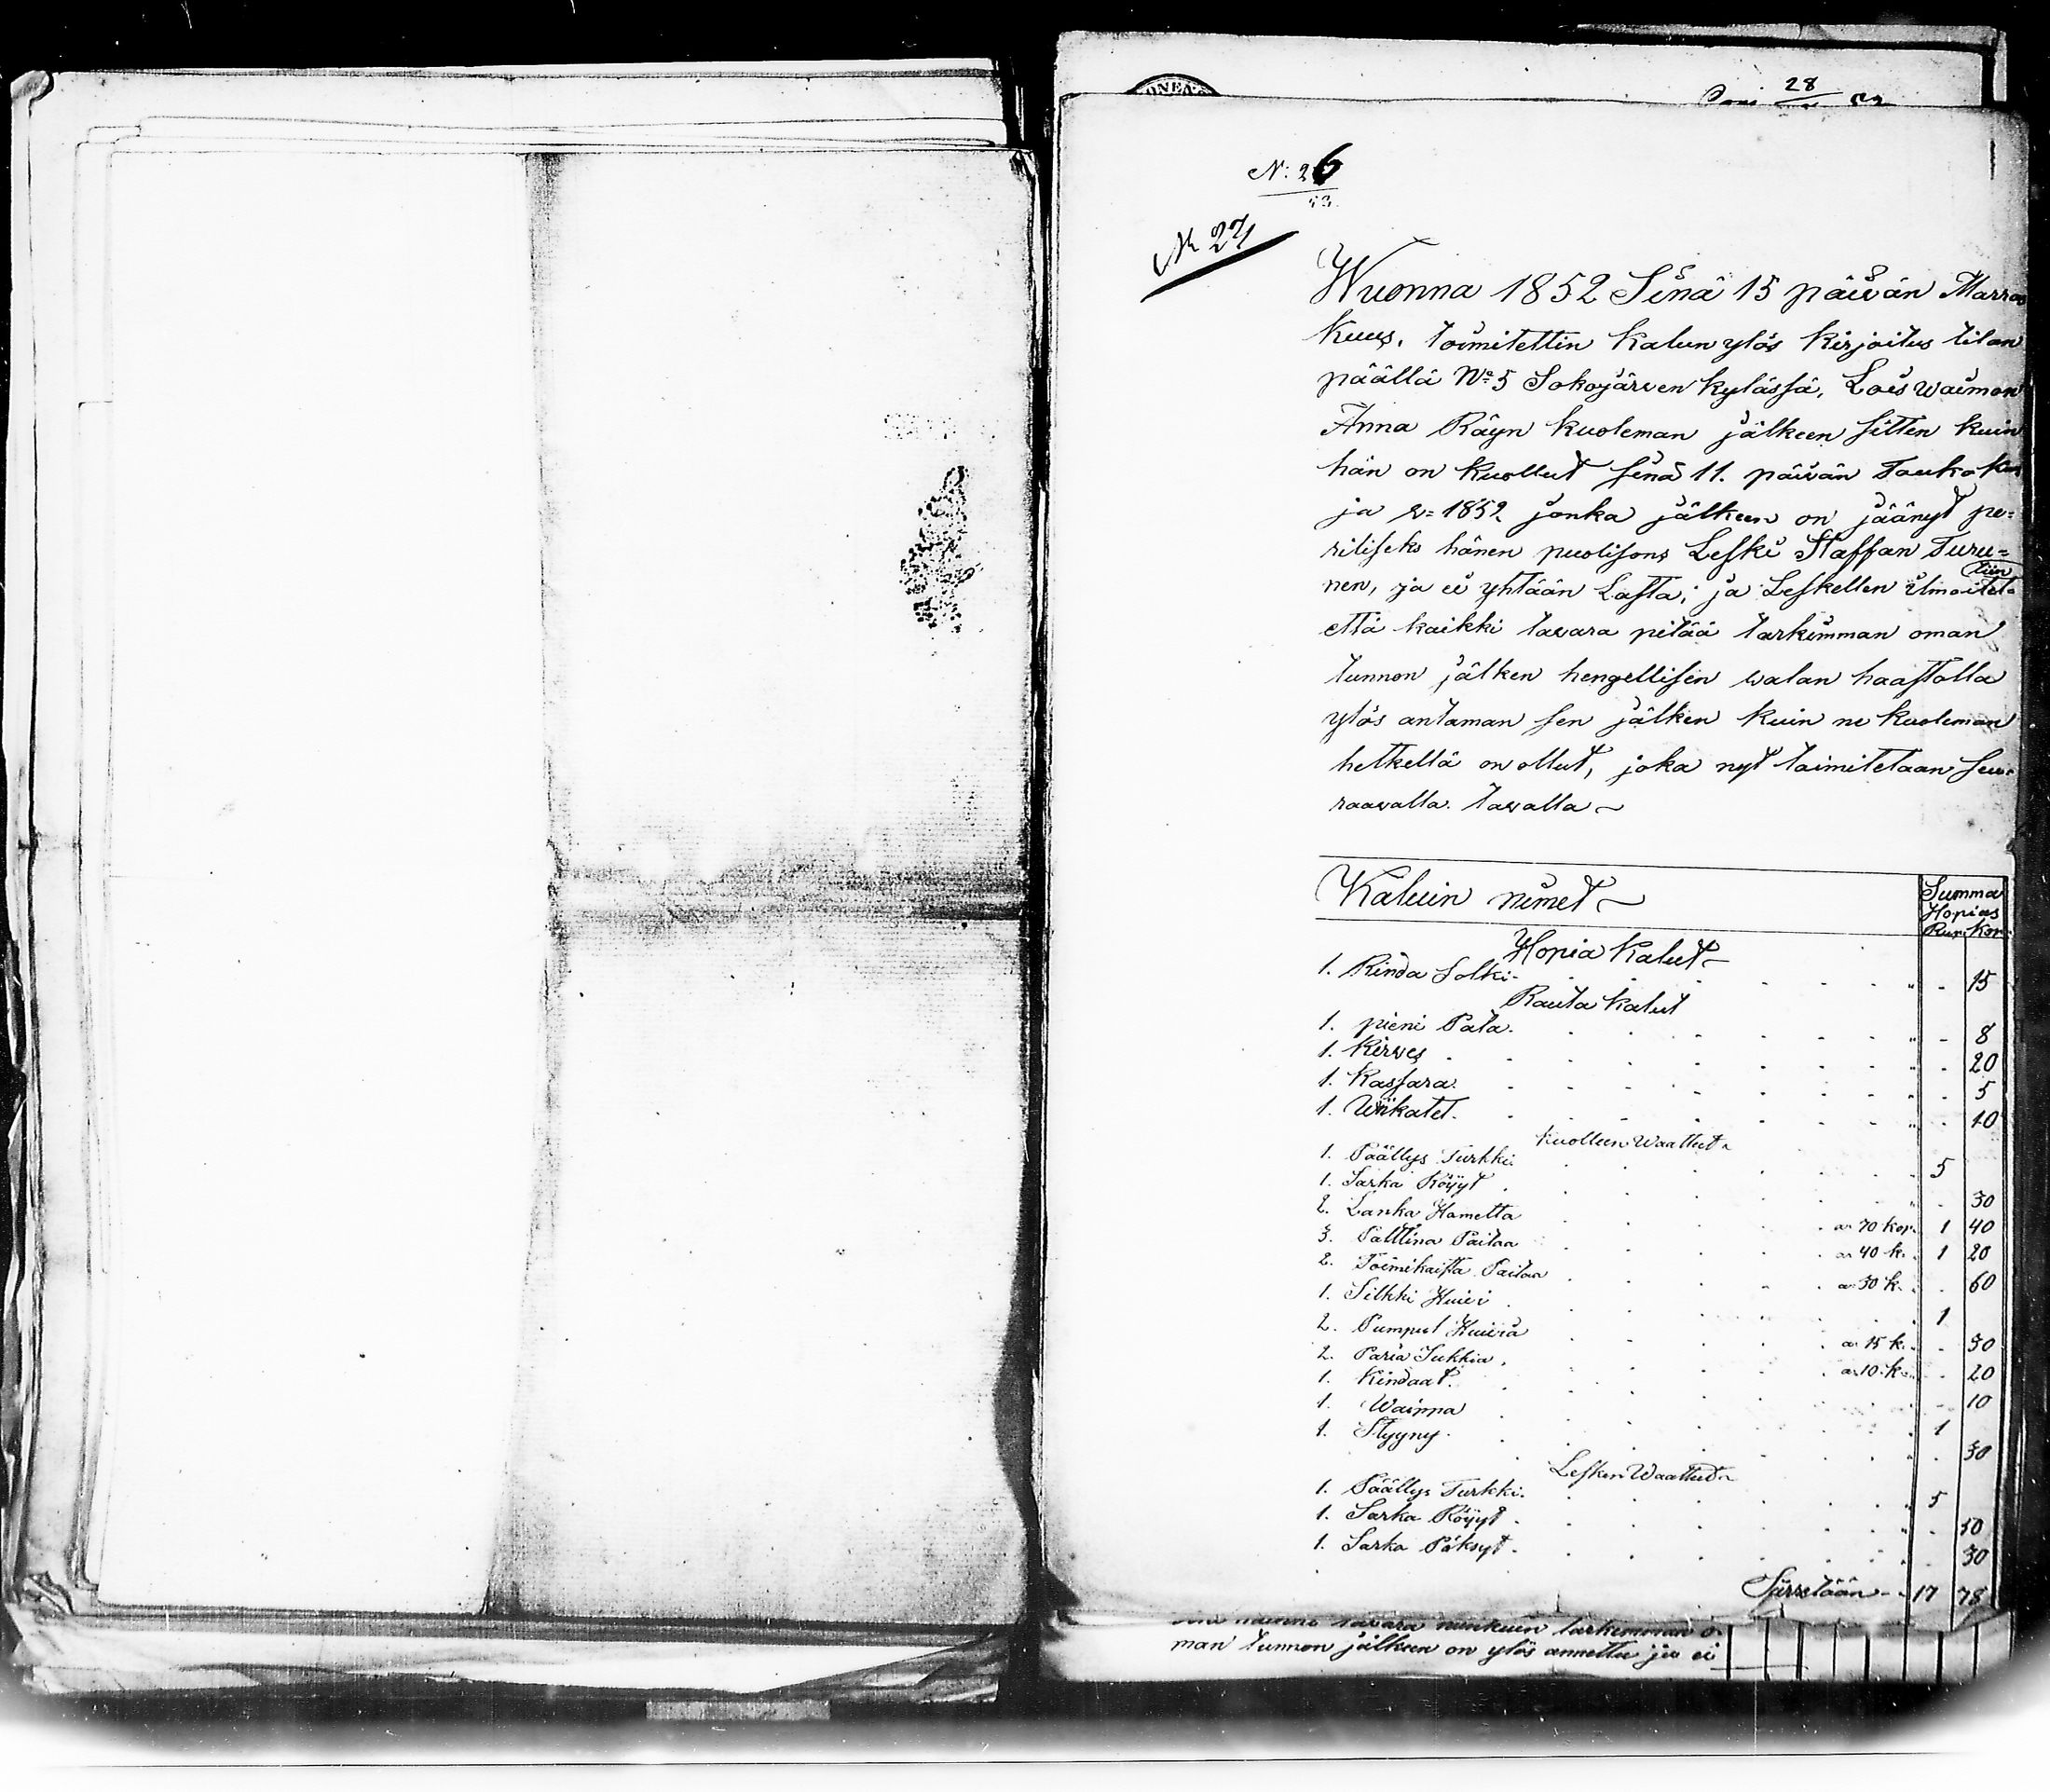 28
N: 26
53.
N 27
Wuonna 1852 Sinä 15 päivän Marras
kuus, toimitettin kalun ylös kirjoitus tilan
päällä No 5 Sokojärven kylässä, Lois waimon
Anna Räyn kuoleman jälkeen sitten kuin
hän on kuollut sinä 11. päivän Touko kuu
ja v= 1852 jonka jälkeen on jäänyt pe=
riliseks hänen puolisons Leski Staffan Turu=
tiin
nen, ja ei yhtään Lasta; ja Leskellen ilmoitet=
että kaikki tavara pitää tarkimman oman
tunnon jälken hengellisen walan haastolla
ylös antaman sen jälken kuin ne kuoleman
hetkellä on ollut, joka nyt toimitetaan seu=
raavalla tavalla ~
Kaluin nimet ~ Summa
Hopias
Rup. Kop.
Hopia Kalut ~
1. Rinda Solki 15
Rauta kalut
1. pieni Pata 8
1. Kirves 20
1. Kassara 5
1. Wiikatet 10
kuolleen Waattet ~
1. Päällys Turkki 5
1. Sarka Röyyt 30
2. Lanka Hametta a 70 kop. 1 40
3. Palttina Paitaa a 40 k. 1 20
2. Toimikaista Paitaa a 30 k. 60
1. Silkki Huivi 1
2. Pumpul Huivia a 15 k. 30
2. Paria Sukkia a 10 k. 20
1. Kindaat 10
1. Waippa 1
1. Styyny 30
Lesken Waattet ~
1. Päällys Turkki 5
1. Sarka Röyyt 50
1. Sarka Päksyt 30
Siirretään 17 78
tavara niinkuin tarkimman o-
man tunnon jälkeen on ylös annettu ja ei